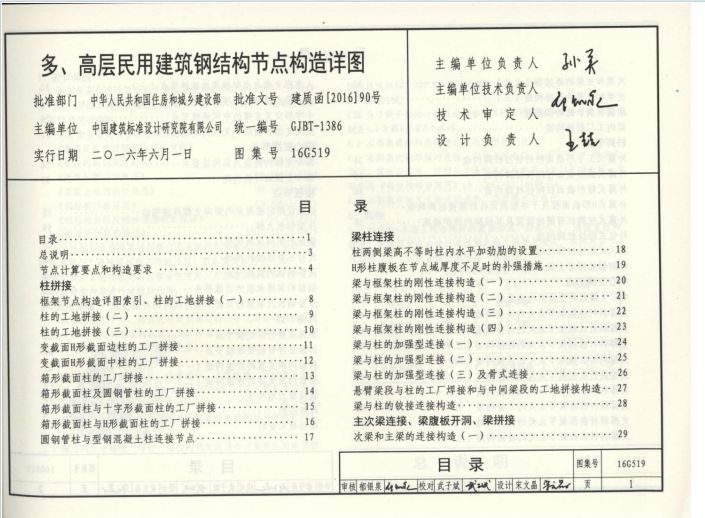 多、高层民用建筑钢结构节点构造详图
批准部门 中华人民共和国住房和城乡建设部 批准文号 建质函[2016]90号
主编单位 中国建筑标准设计研究院有限公司 统一编号 GJBT-1386
实行日期 二〇一六年六月一日 图集号 16G519
主编单位负责人
主编单位技术负责人
技术审定人
设计负责人
目 录
目录 1
总说明 3
节点计算要点和构造要求 4
柱拼接
框架节点构造详图索引、柱的工地拼接（一） 8
柱的工地拼接（二） 9
柱的工地拼接（三） 10
变截面H形截面边柱的工厂拼接 11
变截面H形截面中柱的工厂拼接 12
箱形截面柱的工厂拼接 13
箱形截面柱及圆钢管柱的工厂拼接 14
箱形截面柱与十字形截面柱的工厂拼接 15
箱形截面柱与H形截面柱的工厂拼接 16
圆钢管柱与型钢混凝土柱连接节点 17
梁柱连接
柱两侧梁高不等时柱内水平加劲肋的设置 18
H形柱腹板在节点域厚度不足时的补强措施 19
梁与框架柱的刚性连接构造（一） 20
梁与框架柱的刚性连接构造（二） 21
梁与框架柱的刚性连接构造（三） 22
梁与框架柱的刚性连接构造（四） 23
梁与柱的加强型连接（一） 24
梁与柱的加强型连接（二） 25
梁与柱的加强型连接（三）及骨式连接 26
悬臂梁段与柱的工厂焊接和与中间梁段的工地拼接构造 27
梁与柱的铰接连接构造 28
主次梁连接、梁腹板开洞、梁拼接
次梁和主梁的连接构造（一） 29
目录 图集号 16G519
审核 郁银泉 校对 武子斌 设计 宋文晶 页 1